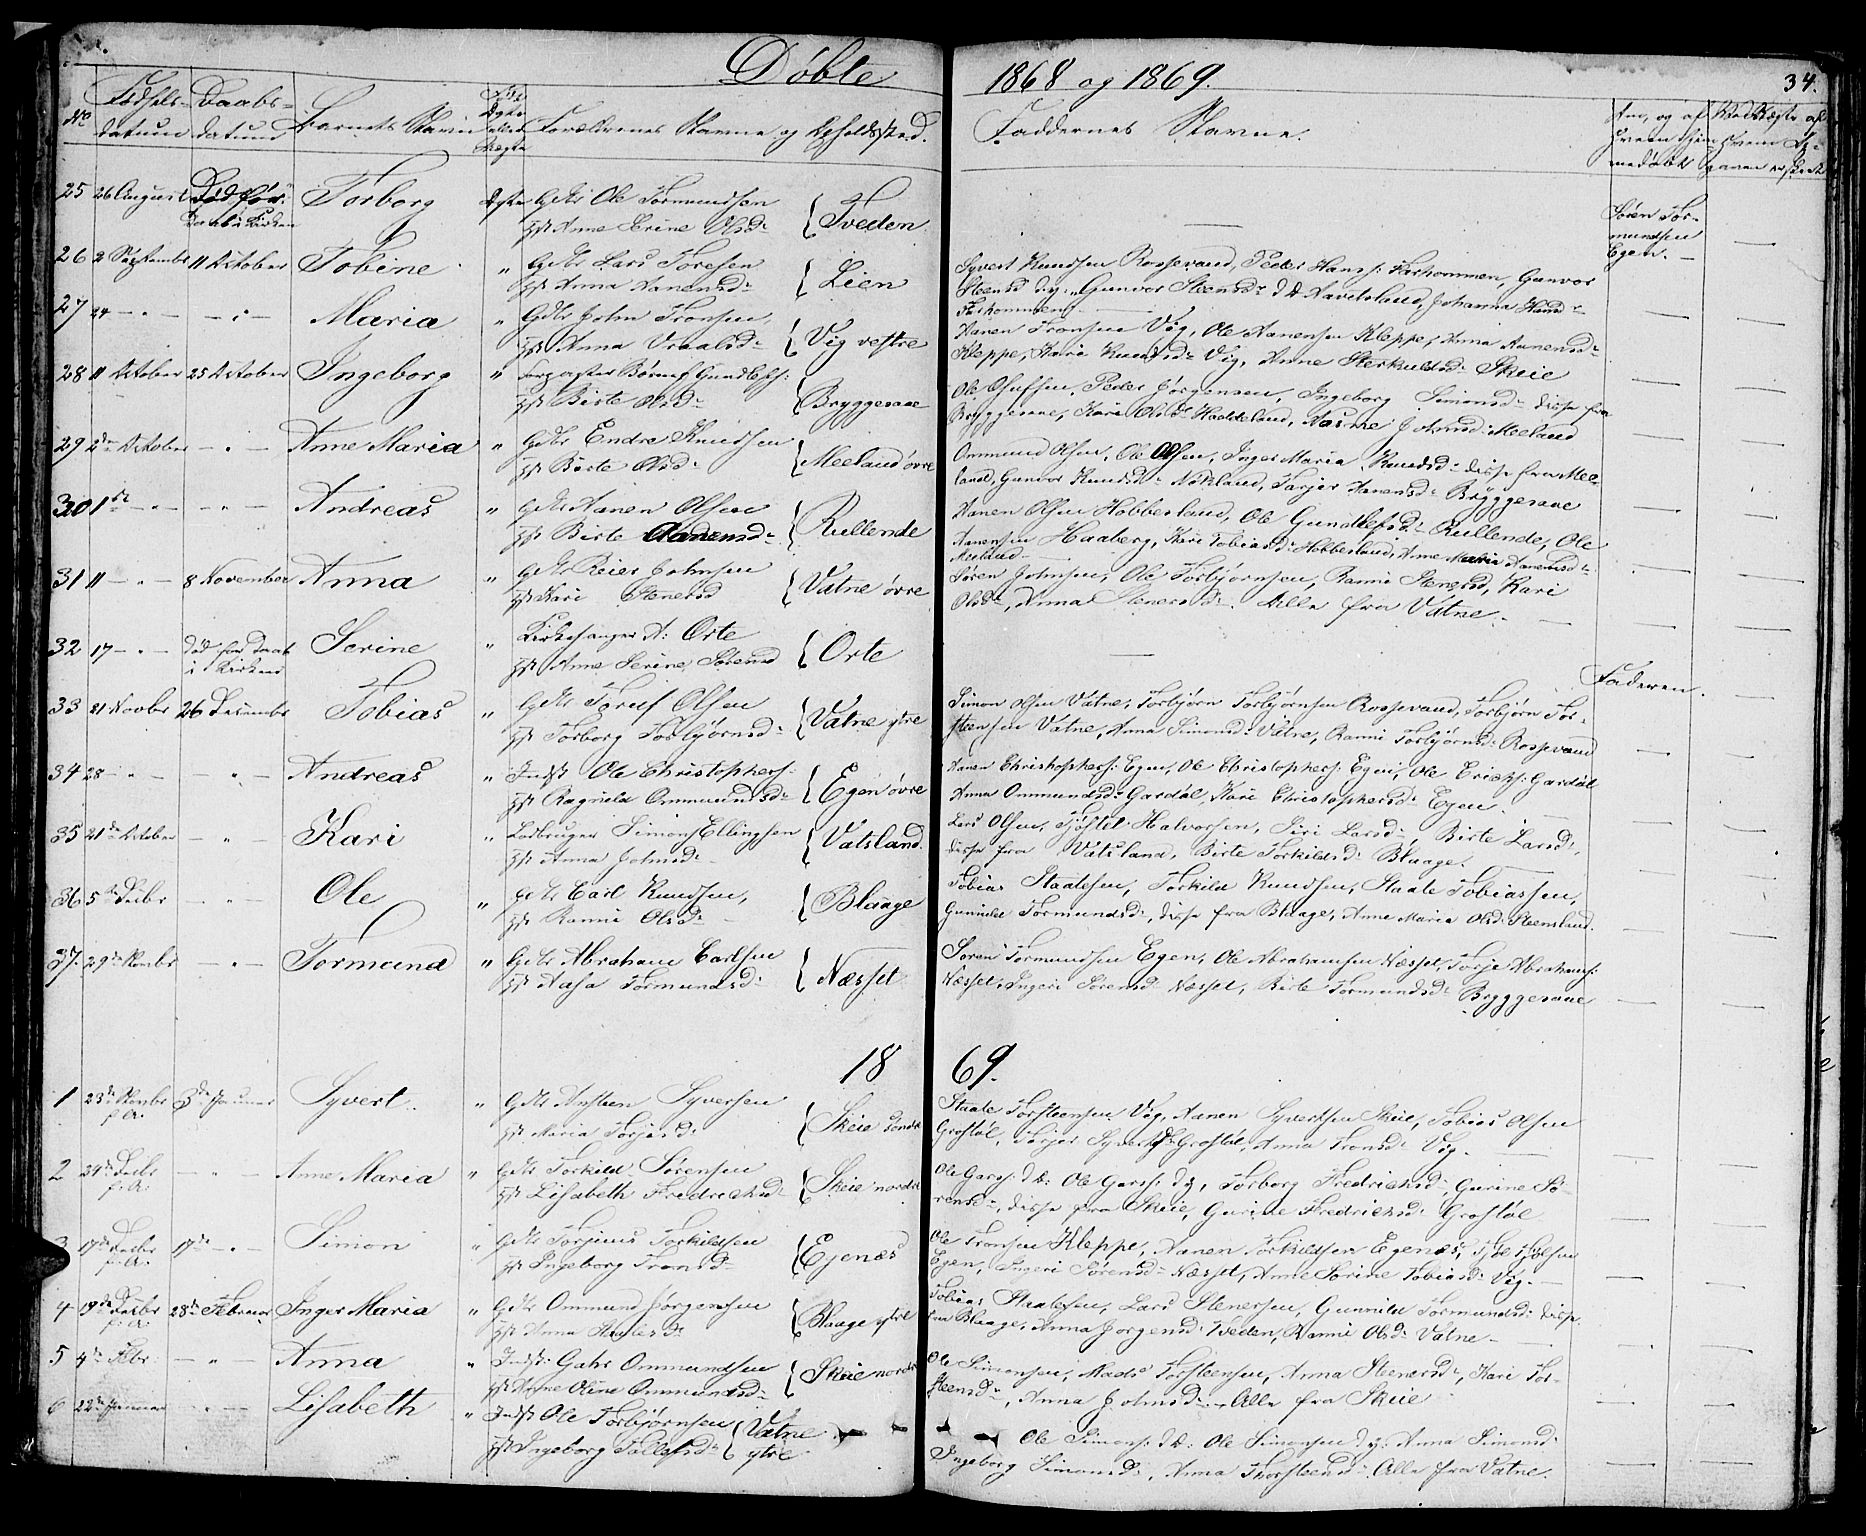 Døbte 1868 og 1869. 34.
No Fødsels- datum Daabs- datum Barnets Navn Forældrenes Navne og Opholdssted. Faddernes Navne.
25 26 August Død før Daab i Kirken Torborg Ægte Gdbr Ole Tormundsen Hst Anne Serine Olsd: Tveden — Søren Tor- mundsen Egen. —
26 2 September 11 October Tobine " Gdbr Lars Toresen Hst Anna Aanensd: Lien Syvert Knudsen Rossevand, Peder Hanss: Farkommen, Gunvor
Steensd d.y., Gunvor Steensd: d.Æ Aavitsland, Johanna Hansd:
Farkommen. —
27 24 — " — — " — Maria " Gdbr John Tronsen Hst Anna Vraalsd: Vig vestre Aanen Tronsen Vig, Ole Aanensen Kleppe, Anna Aanensd:
Kleppe, Kari Knudsd: Vig, Anne Sterkulsd: Skeie
28 11 October 25 October Ingeborg " Forpagter Børues Gundless: Hst Birte Olsd: Bryggesaae Ole Olufsen, Peder Jørgensen, Ingeborg Simonsd: disse fra
Bryggesaae, Kari Olsd: Haddeland, Johnsd: Meeland
29 2den October — " — Anne Maria " Gdbr Endre Knudsen Hst Birte Olsd: Meeland øvre Ommund Olsen, Ole Olsen, Inger Maria Knudsd: disse fra Mee-
land, Gunvor Knudsd: Nökland, Tarjer Aanensd: Bryggesaae
30 1ste — " — — " — Andreas " Gdbr Aanen Olsen Hst Birte Aanensd: Rullende Aanen Olsen Hobbesland, Ole Gundlefsd: Rullende, Ole
Aanensen Haaberg, Kari Tobiasd: Hobbesland, Anne Maria Aanensd:
Meeland —
31 11 — " — 8 November Anna " Gdbr Reier Johnsen Hst Kari Stenersd Vatne øvre Søren Johnsen, Ole Torbjørnsen, Rannei Stenersd, Kari
Olsd:, Anna Stenersd:. Alle fra Vatne.
32 17 — " — Død før Daab i Kirken Serine " Kirkesanger A: Orte Hst Anne Serine Sørensd Orte — Faderen.
33 21 Novbr 26 December Tobias " Gdbr Tarus Olsen Hst Torborg Torbjørnsd: Vatne ytre Simon Olsen Vatne, Torbjørn Torbjørnsen Rossevand, Torbjørn Tor-
steensen Vatne, Anna Simonsd: Vatne, Rannei Torbjørnsd: Rossevand
34 28 — " — — " — Andreas " Indst Ole Christophers: Hst Ragnild Ommundsd: Egen øvre Aanen Christophers: Egen, Ole Christophers: Egen, Ole Ericks: Gardøl
Anna Ommundsd: Gardøl, Kari Christophersd: Egen.
35 21de October — " — Kari " Lodbruger Simon Ellingsen Hst Anna Johnsd: Vatsland Lars Olsen, Tjøstel Halvorsen, Siri Larsd:, Birte Larsd:,
disse fra Vatsland, Birte Torkildsd: Blaage.
36 5te Decbr — " — Ole " Gdbr Carl Knudsen, Hst Rannei Olsd: Blaage Tobias Staalesen, Torkild Knudsen, Staale Tobiassen,
Gunnild Tormundsd:, disse fra Blaage, Anne Maria Olsd: Steensland.
37. 29de Novbr — " — Tormund " Gdbr Abraham Carlsen Hst Aasa Tormundsd: Næsset Søren Tormundsen Egen, Ole Abrahamsen Næsset, Torje Abrahams:
Næsset, Ingeri Sørensd: Næsset, Birte Tormundsd: Bryggesaae
1869.
1 23de Novbr f.A. 3de Januar Syvert " Gdbr Aasteen Syversen Hst Maria Torjusd: Skeie søndre Staale Torsteensen Vig, Aanen Syvertsen Skeie, Tobias Olsen
Grostøl, Torjer Syvertsd: Grostøl, Anna Tronsd: Vig.
2 24de Decbr f.A. — " — Anne Maria " Gdbr Torkild Sørensen Hst Lisabeth Fredricksd: Skeie nordre Ole Garss: d.Æ. Ole Garss: d.y., Torborg Fredricksd:, Gurine Sø-
rensd:, disse fra Skeie, Gurine Fredricksd: Grostøl
3 17de Decbr f.A. 17de — " — Simon " Gdbr Torjus Torkildsen Hst Ingeborg Tronsd: Ejenæs Ole Tronsen Kleppe, Aanen Torkildsen Egenæs,
Egen, Ingeri Sørensd: Næsset, Anne Sørine Tobiasd: Vig. —
4 19de Decbr f.A. 28de Februar Inger Maria " Gdbr Ommund Jørgensen Hst Anna Blaage ytre Tobias Staalesen, Lars Stenersen, Gunnild Tormundsd: disse
fra Blaage, Anna Jørgensd: Tveden, Rannei Olsd: Vatne —
5 4de Febr: — " — Anna " Indst: Gahr Ommundsen Hst Anne Oline Ommundsd: Skeie nordre Ole Simonsen, Mads Torsteensen, Anna Stenersd:, Kari Tor-
steensd:, Anna Johnsd:, Alle fra Skeie
6 22de Januar — " — Lisabeth " Indst Ole Torbjørnsen Hst Ingeborg Tallefsd: Vatne ytre Ole Simons: d.Æ: Ole Simonsen d.y: Anna Simonsd:
Ingeborg Simonsd:, Anna Thorsteensd: Alle fra Vatne.